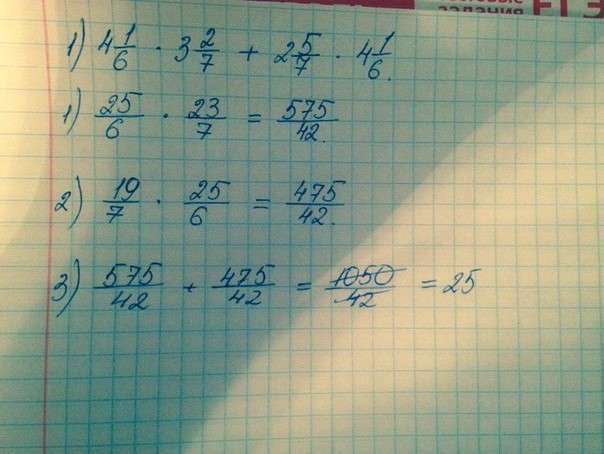 задания ЕГЭ
1) 4 1/6 · 3 2/7 + 2 5/7 · 4 1/6.
1) 25/6 · 23/7 = 575/42.
2) 19/7 · 25/6 = 475/42.
3) 575/42 + 475/42 = 1050/42 = 25